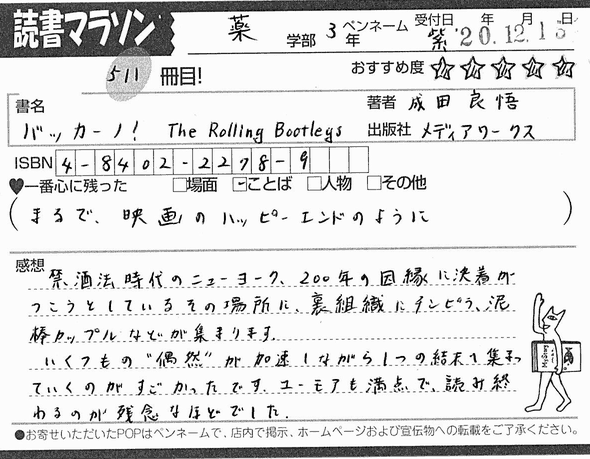 読書マラソン
薬 学部 3年 ペンネーム 紫 受付日 年 月 日 '20.12.15
511 冊目! おすすめ度 ☆☆☆☆☆
書名 著者 成田良悟
バッカーノ! The Rolling Bootlegs 出版社 メディアワークス
ISBN 4-8402-2278-9
♥一番心に残った □場面 □ことば □人物 □その他
(まるで、映画のハッピーエンドのように)
感想
禁酒法時代のニューヨーク、200年の因縁に決着が
つこうとしているその場所に、裏組織にチンピラ、泥
棒カップルなどが集まります。
いくつもの"偶然"が加速しながら1つの結末へ集まっ
ていくのがすごかったです。ユーモアも満点で、読み終
わるのが残念なほどでした。
●お寄せいただいたPOPはペンネームで、店内で掲示、ホームページおよび宣伝物への転載をご了承ください。